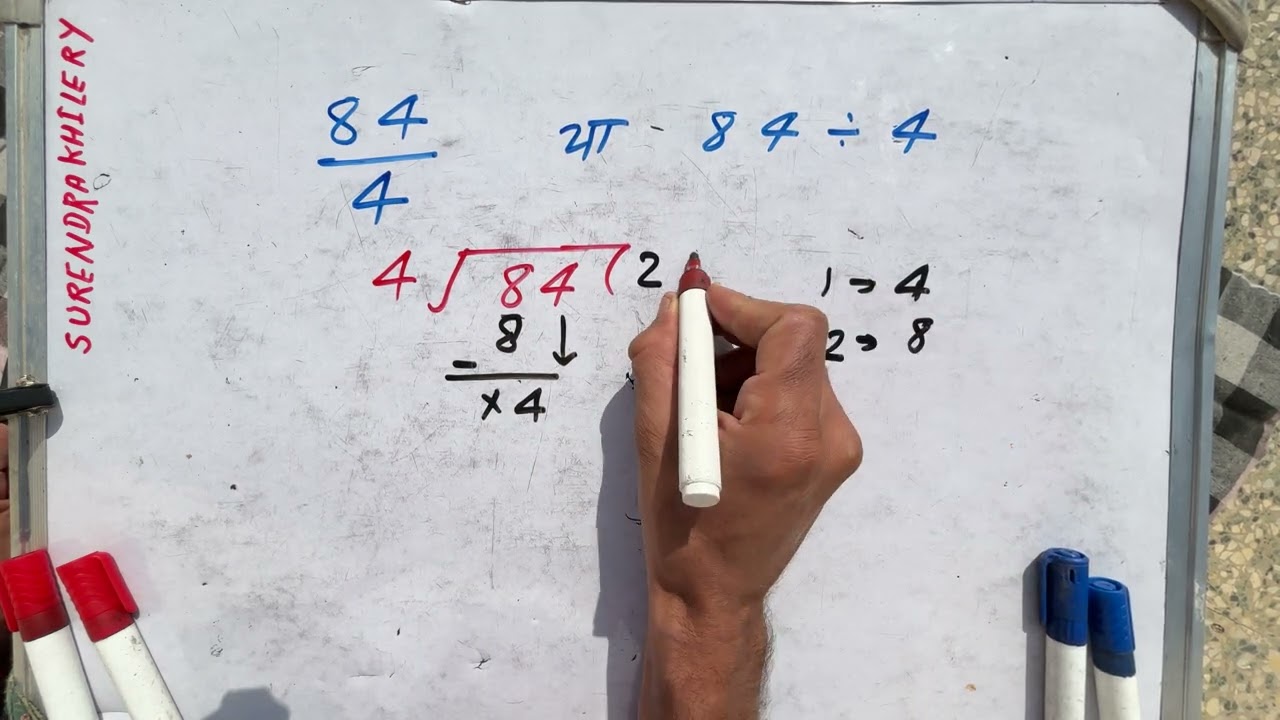 SURENDRA KHILERY
84
4
या - 84 ÷ 4
4 √ 84 ( 2
- 8 ↓
× 4
1 → 4
2 → 8